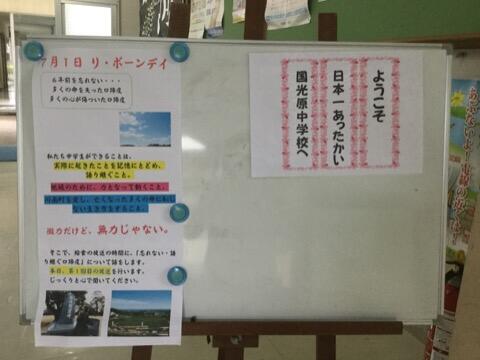 7月1日 リ・ボーンデイ
6年前を忘れない・・・
多くの命を失った口蹄疫
多くの心が傷ついた口蹄疫
私たち中学生ができることは、
実際に起きたことを記憶にとどめ、
語り継ぐこと。
地域のために、力となって動くこと。
川南町を愛し、亡くなった多くの命に恥じ
ない生き方をすること。
微力だけど、無力じゃない。
そこで、給食の放送の時間に、「忘れない・語
り継ぐ口蹄疫」について話をします。
本日、第1回目の放送を行います。
じっくりと心で聞いてください。
ようこそ
日本一あったかい
国光原中学校へ